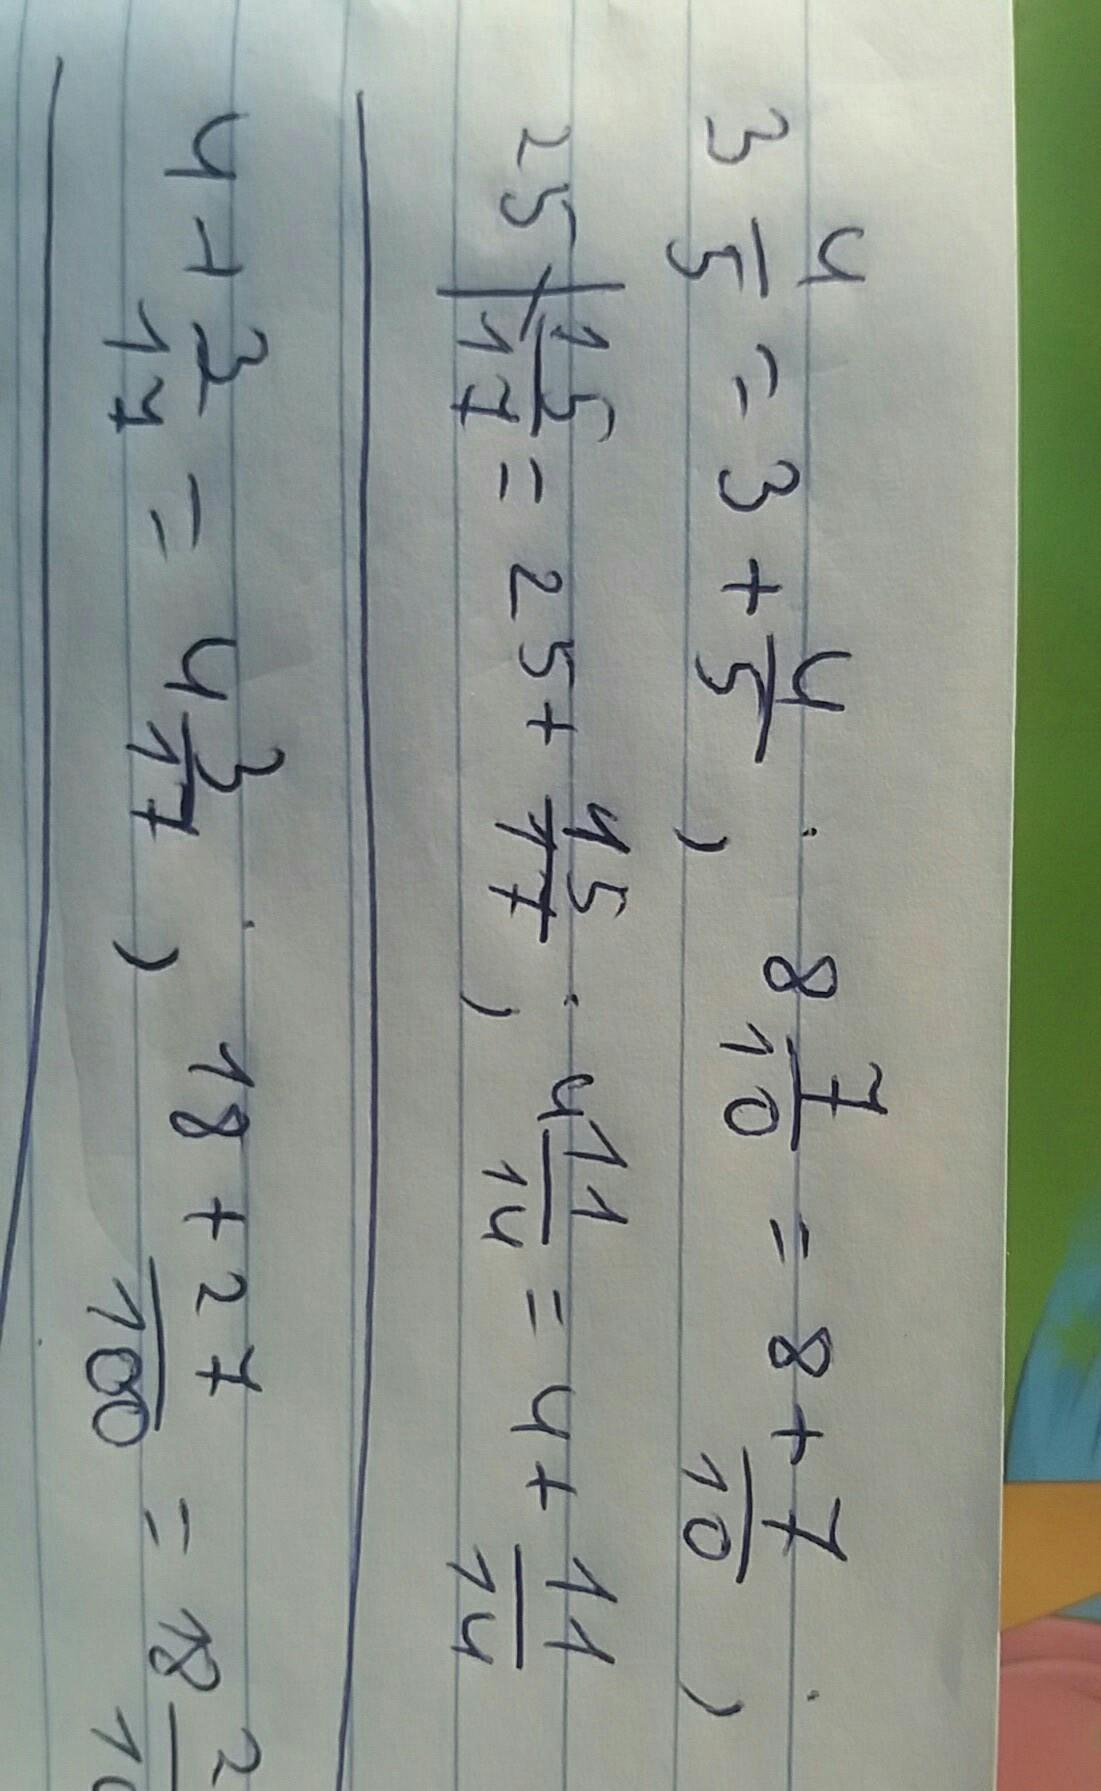 3 4/5 = 3 + 4/5 ; 8 7/10 = 8 + 7/10 ;
25 15/17 = 25 + 15/17 ; 4 11/14 = 4 + 11/14
4 + 3/17 = 4 3/17 ; 18 + 27/100 = 18